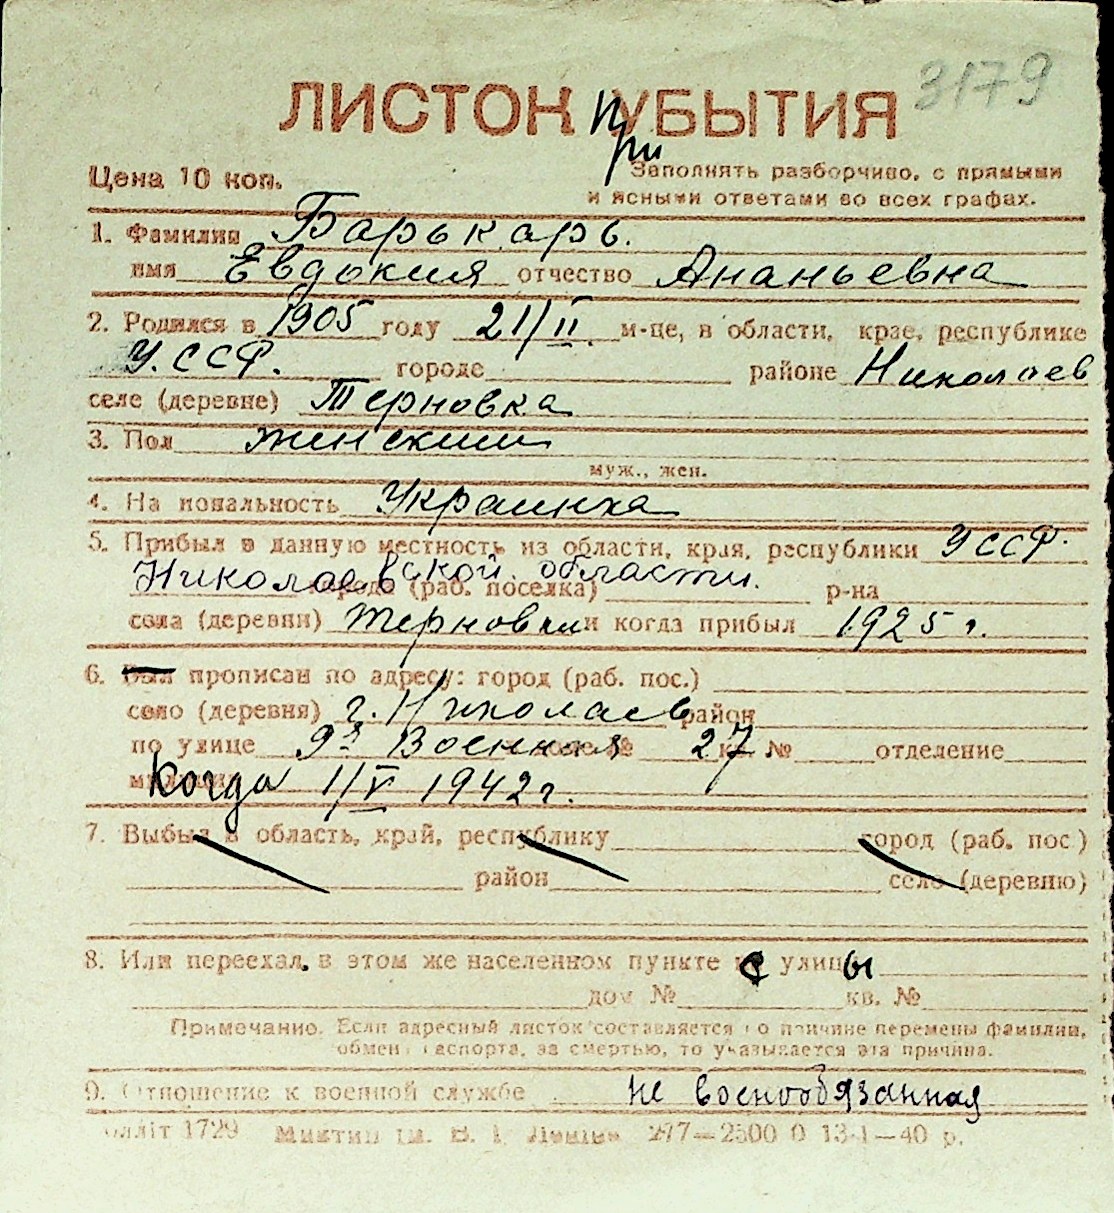 3179
ЛИСТОК при УБЫТИЯ
Цена 10 коп.
Заполнять разборчиво, с прямыми
и ясными ответами во всех графах.
1. Фамилия Барькарь.
имя Евдокия отчество Ананьевна
2. Родился в 1905 году 21/II м-це, в области, крае, республике
У.ССР. городе районе Николаев
селе (деревне) Терновка
3. Пол женский
муж., жен.
4. На иональность Украинка
5. Прибыл в данную местность из области, края, республики УССР.
Николаевской области. города (раб. поселка) р-на
села (деревни) Терновки и когда прибыл 1925 г.
6. Был прописан по адресу: город (раб. пос.)
село (деревня) г. Николаев район
по улице 9я Военная № 27 кв. № отделение
Когда 1/V 1942 г.
7. Выбыл в область, край, республику город (раб. пос)
район село (деревню)
8. Или переехал в этом же населенном пункте с улицы
дом № кв. №
Примечание. Если адресный листок составляется по причине перемены фамилии,
обмена паспорта, за смертью, то указывается эта причина.
9. Отношение к военной службе не военообязанная
1729 277—2500 0 13-I—40 р.